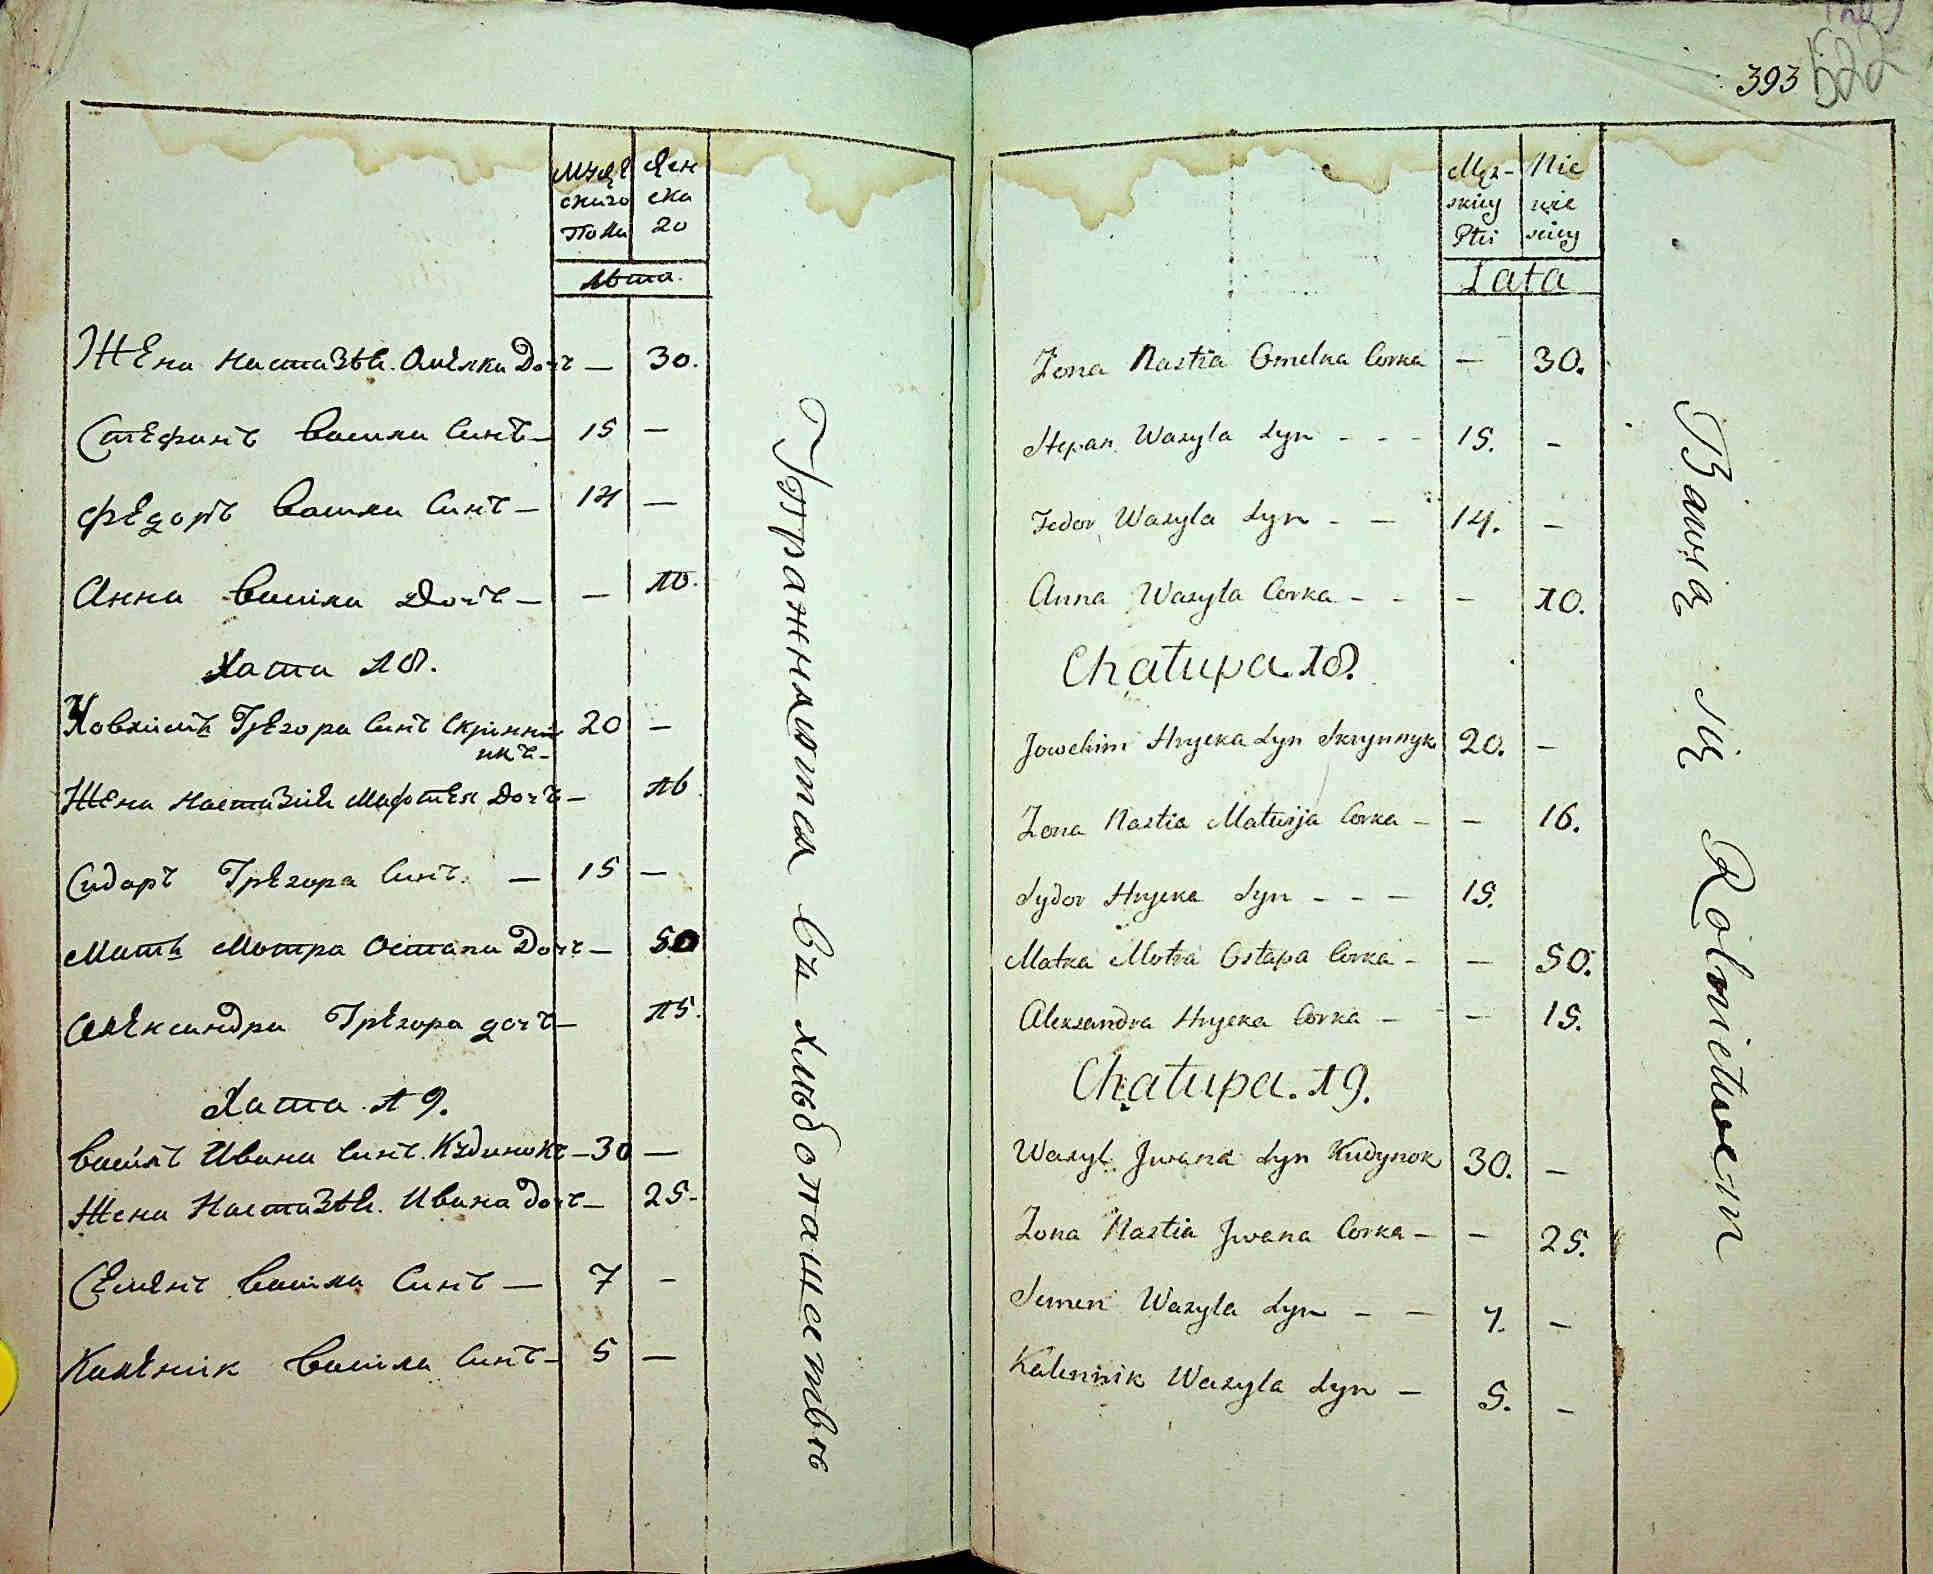 мужескаго пола
женскаго
лѣта.
Жена Настазѣя. Омелка Дочь — 30.
Стефанъ Василя Синъ — 15 —
Федоръ Василя Синъ — 14 —
Анна Василя Дочъ — — 10.
Хата 18.
Ховхимъ Грегора Синъ Скринникъ — 20 —
Жена Настазия Мафтея Дочъ — 16.
Сидоръ Грегора Синъ. — 15 —
Мать Мотра Остапа Дочъ — 50
Александра Грегора дочъ — 15.
Хата 19.
Василъ Ивана Синъ. Кудинокъ — 30 —
Жена Настазѣя. Ивана дочъ — 25 -
Семенъ Василя Синъ — 7 -
Каленик Василя Синъ — 5 —
Упражняются въ хлѣбопашетвѣ
393
522
Męzkiey Płci
Nie wie skiey
Lata
Zona Nastia Omelka Corka — 30.
Stepan Wasyla Syn - - - 15. -
Fedor Wasyla Syn - — 14. -
Anna Wasyla Corka - - - 10.
Chałupa. 18.
Jowchim Hryćka Syn Skrynnyk 20. -
Zona Nastia Matwija Corka - — 16.
Sydor Hryćka Syn - - - 15.
Matka Motra Ostapa Corka - — 50.
Alexandra Hryćka Corka - — 15.
Chałupa. 19.
Wasyl Jwana Syn Kudynok 30. -
Zona Nastia Jwana Corka - - 25.
Semen Wasyla Syn - — 7. -
Kalennik Wasyla Syn — 5. -
Bawią się Rolnictwem